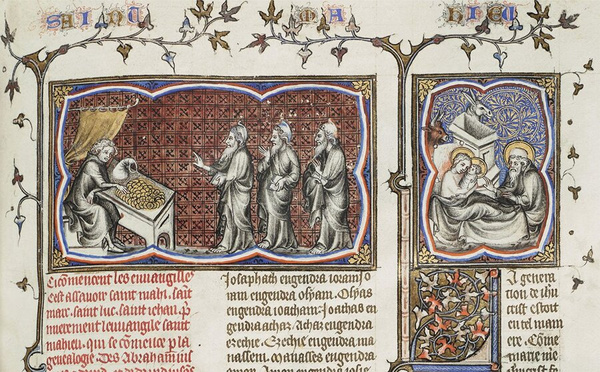 SAINT MA HIEU
Ci cōmencent les euuangilles
est assauoir saint mahi. saīt
marc. saint luc. saint iehan. p
mierement leuuangile saint
mahieu, qui se cōmēce p la
genealogie. Des Abraham ius
Iosaphath engendra ioram Jo
ram engendra osyam. Osyas
engendra ioacham: Joathas en
gendra achar. Achar engendra
ezechie. Ezechie engendra ma
nassem. Manasses engendra
amon. Amon engendra iosie
A genera
tion de ihu
crist estoit
en tel mani
ere. Cōme
marie me